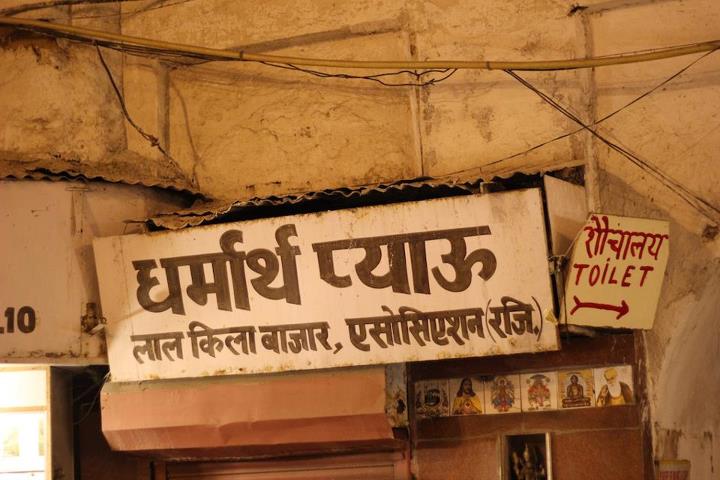 धर्मार्थ प्याऊ
लाल किला बाजार, एसोसिएशन (रजि.)
शौचालय
TOILET
.10